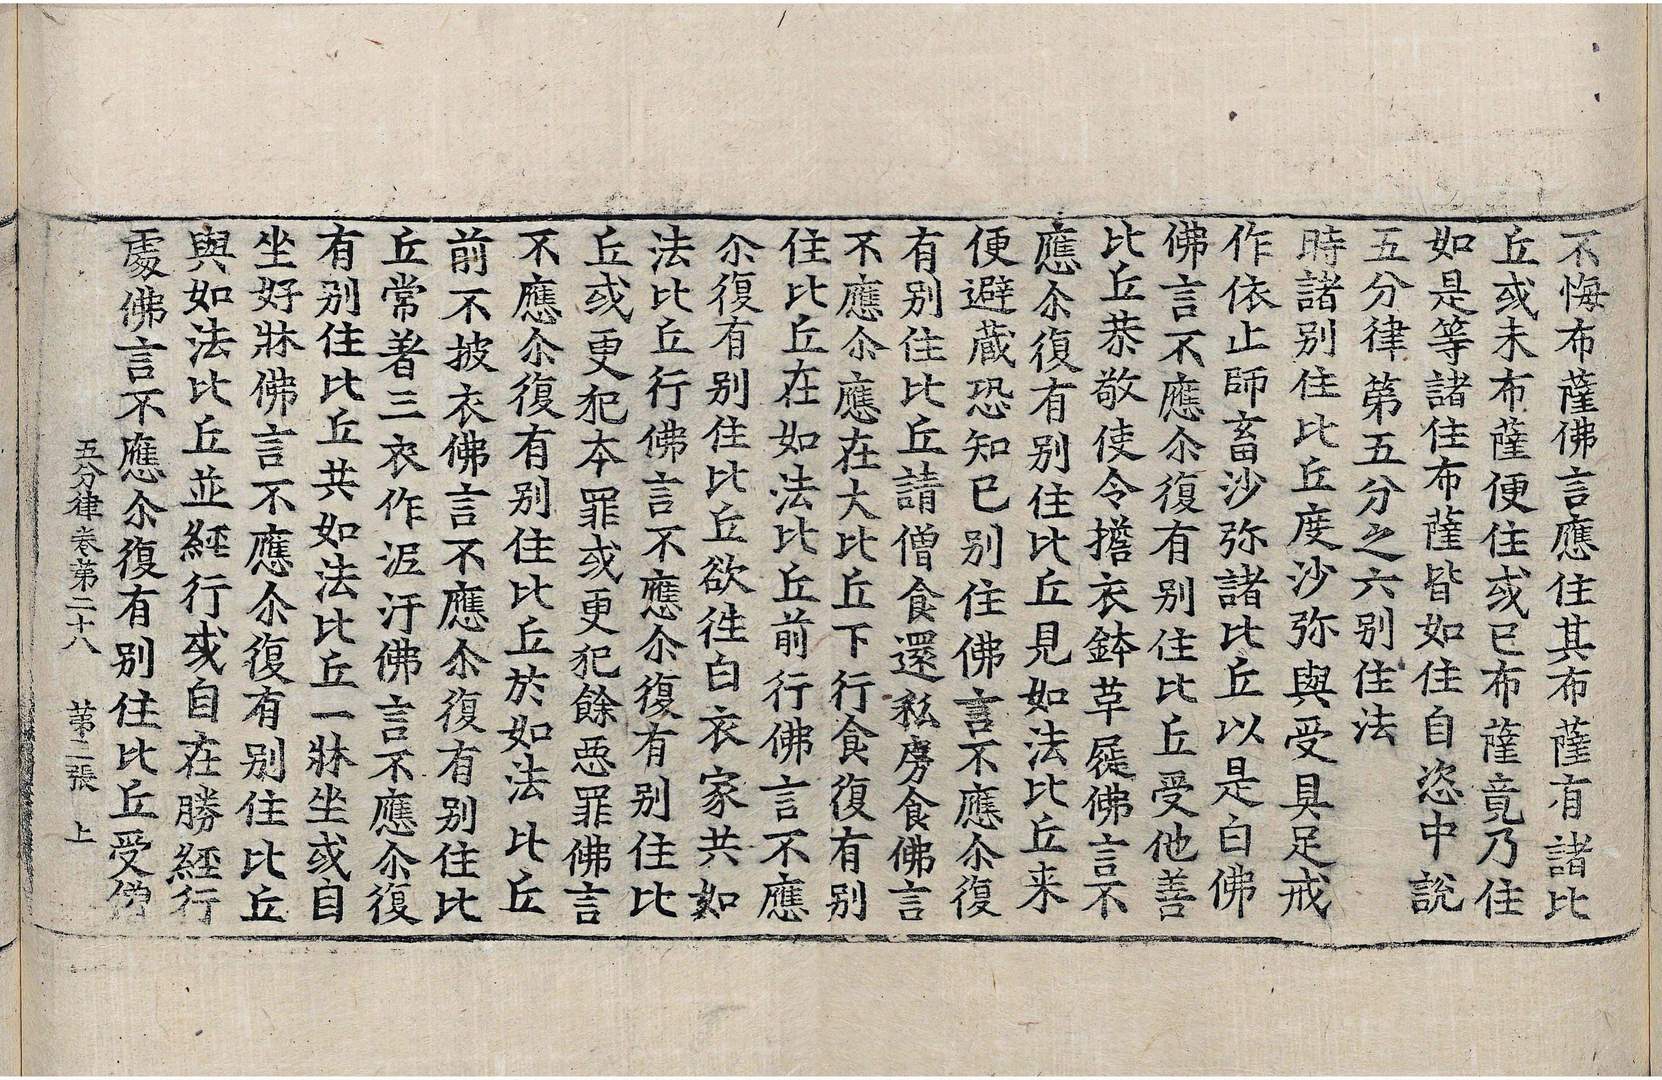 不悔布薩佛言應住其布薩有諸比
丘或未布薩便住或已布薩竟乃住
如是等諸住布薩皆如住自恣中說
五分律第五分之六别住法
時諸别住比丘度沙弥與受具足戒
作依止師畜沙弥諸比丘以是白佛
佛言不應尒復有别住比丘受他善
比丘恭敬使令擔衣鉢草屣佛言不
應尒復有别住比丘見如法比丘来
便避蔵恐知已别住佛言不應尒復
有别住比丘請僧食還私房食佛言
不應尒應在大比丘下行食復有别
住比丘在如法比丘前行佛言不應
尒復有别住比丘欲徃白衣家共如
法比丘行佛言不應尒復有别住比
丘或更犯本罪或更犯餘惡罪佛言
不應尒復有别住比丘於如法比丘
前不披衣佛言不應尒復有别住比
丘常著三衣作泥汙佛言不應尒復
有别住比丘共如法比丘一牀坐或自
坐好牀佛言不應尒復有别住比丘
與如法比丘並經行或自在勝經行
處佛言不應尒復有别住比丘受僧
五分律卷第二十八 第二張 上